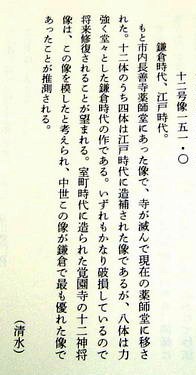 十二号像一五一・〇
鎌倉時代、江戸時代。
もと市内長善寺薬師堂にあった像で、寺が滅んで現在の薬師堂に移さ
れた。十二体のうち四体は江戸時代に造補された像であるが、八体は力
強く堂々とした鎌倉時代の作である。いずれもかなり破損しているので
将来修復されることが望まれる。室町時代に造られた覚園寺の十二神将
像は、この像を模したと考えられ、中世この像が鎌倉で最も優れた像で
あったことが推測される。
（清水）